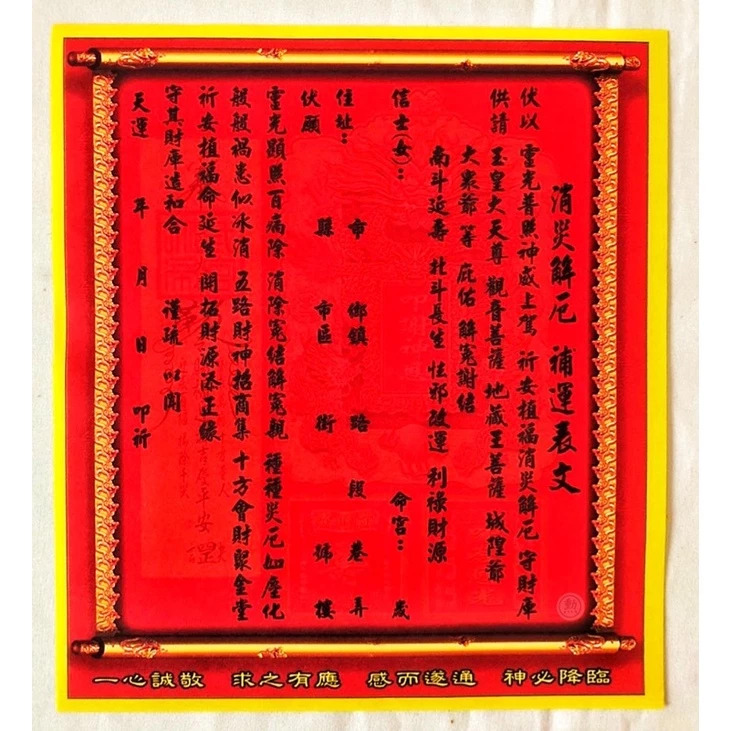 消災解厄 補運表文
伏以 靈光普照神威上駕 祈安植福消災解厄 守財庫
供請 玉皇大天尊 觀音菩薩 地藏王菩薩 城隍爺
大衆爺等 庇佑 解冤謝結
南斗延壽 北斗長生 怯邪改運 利祿財源
信士(女): 命宮: 歲
住址: 市 鄉鎮 路 段 巷 弄
縣 市區 街 號 樓
伏願
靈光顯照百病除 消除冤結解冤親 種種災厄如塵化
般般禍患似冰消 五路財神招商集 十方會財聚金堂
祈安植福命延生 開拓財源添正緣
守其財庫造和合 謹疏 以聞
天運 年 月 日 叩祈
一心誠敬 求之有應 感而遂通 神必降臨